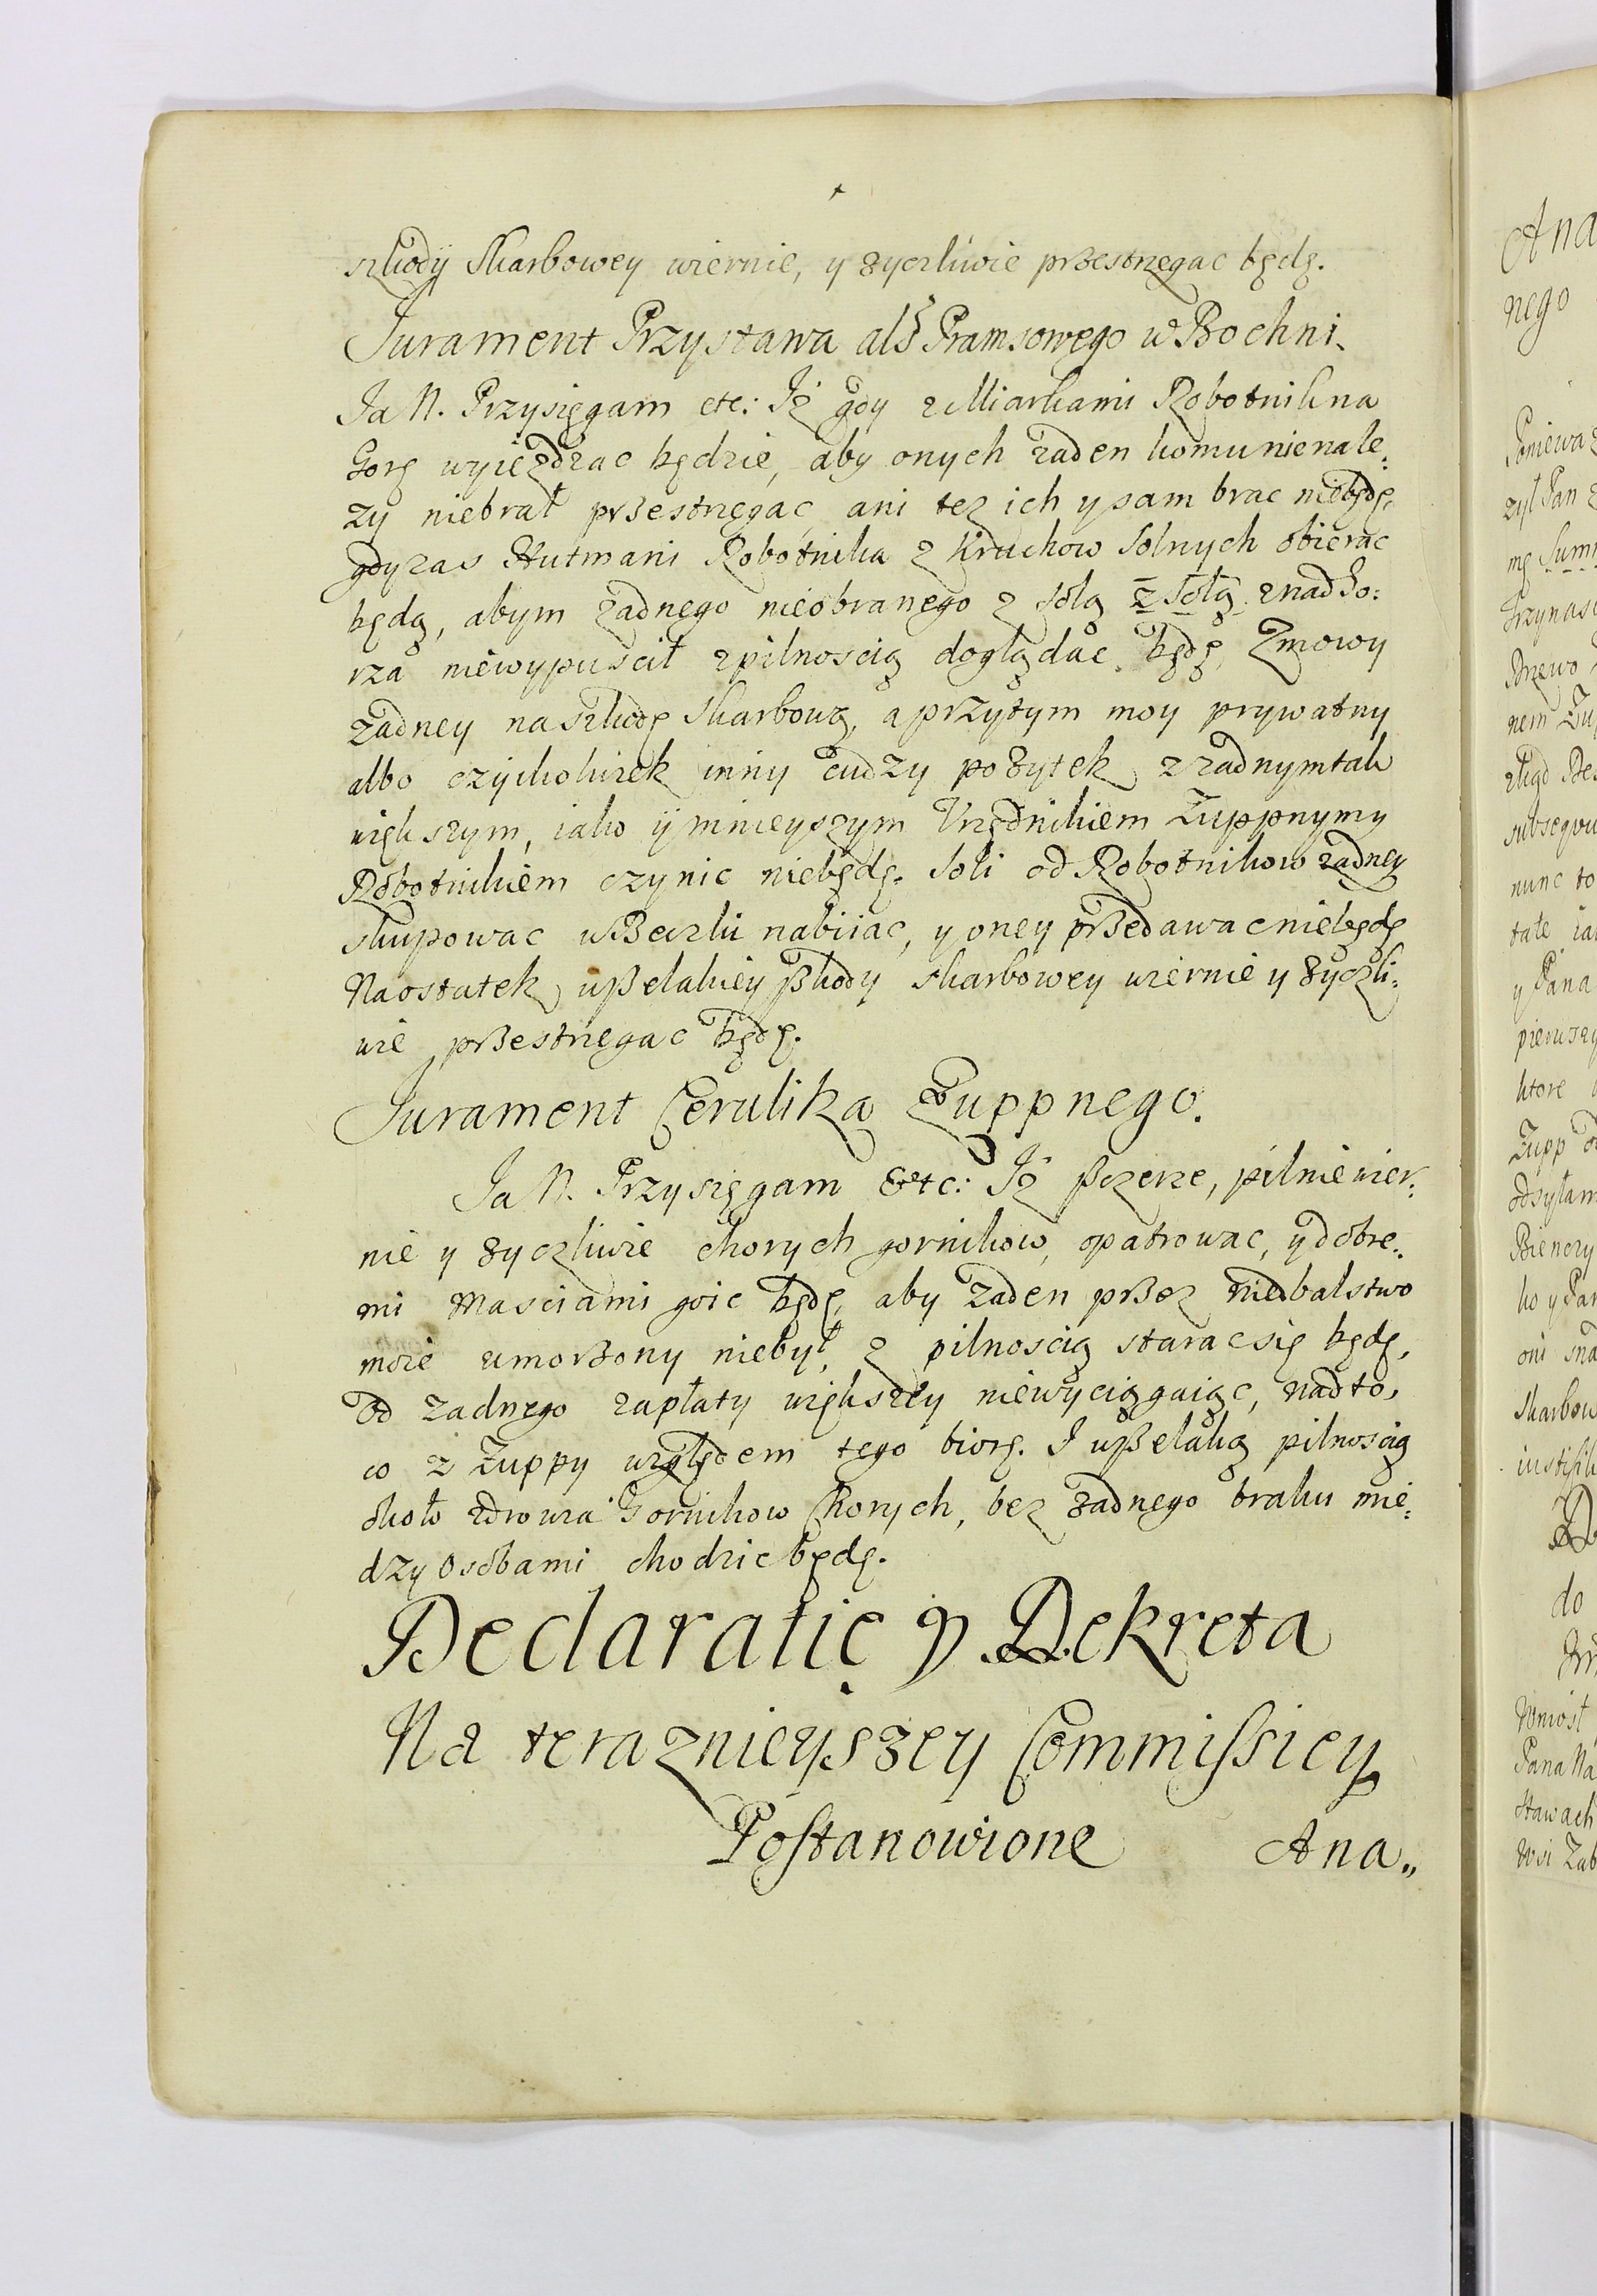 szkody Skarbowey wiernie, y zyczliwie przestrzegac będę.
Jurament Przystawa als Pramsowego w Bochni.
Ja N. Przysięgam etc: Iż gdy z Miarkami Robotnik na
Gorę wyiezdzac będzie, aby onych zaden komu nienale:
zy niebrał przestrzęgac, ani tez ich y sam brac niebędę,
gdy zas Hutmani Robotnika z Kruchow Solnych obierac
będą, abym zadnego nieobranego z solą z Solą z nadSo:
rza niewypuscił z pilnoscią doglądac będę, Zmowy
zadney na szkodę Skarbową, a przytym moy prywatny
albo czyikolwiek inny cudzy pozytek z zadnym tak
większym, iako y mnieyszym Urzędnikiem Zuppnym y
Robotnikiem czynic niebędę. Soli od Robotnikow zadney
skupowac w Beczki nabiiac, y oney przedawac niebędę
Na ostatek wszelakiey szkody skarbowey wiernie y zyczli:
wie przestrzegac będę.
Jurament Cerulika Zuppnego.
Ja N. Przysięgam &tc: Iż szczerze, pilnie wier:
nie y zyczliwie chorych gornikow, opatrowac, y dobre:
mi Masciami goic będę, aby zaden przez niedbalstwo
moie umorzony niebył, z pilnoscią starac się będę,
od zadnego zapłaty większey niewyciągaiąc, nad to,
co z Zuppy względem tego biorę. I wszelaką pilnoscią
około zdrowia Gornikow Chorych, bez zadnego braku mie:
dzy Osobami chodzic będę.
Declaratie y Dekreta
Na teraznieyszey Commissiey
Postanowione Ana„
Ana
nego